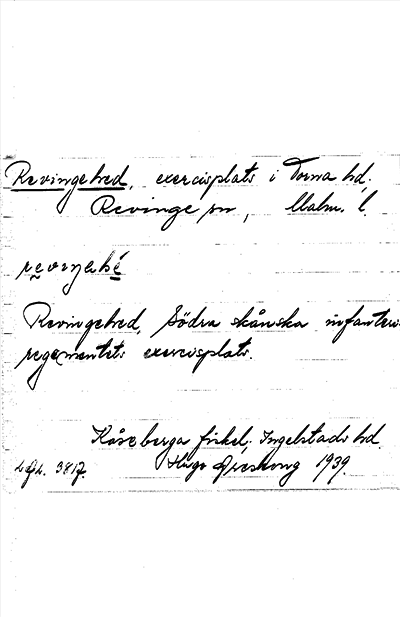 Revingehed, exercisplats i Torna hd.
Revinge sn, Malm. l.
Revingehed, Södra skånska infanteri-
regementets exercisplats.
Kåseberga fiskel. Ingelstads hd.
3817. Hugo 1939.